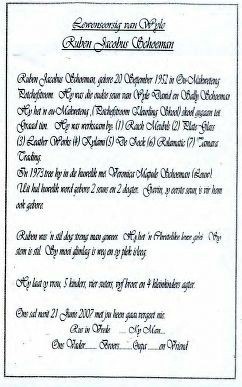 Lewensorsig van Wyle
Ruben Jacobus Schoeman
Ruben Jacobus Schoeman, gebore 20 September 1952 in Ou-Makweteng
Potchefstroom. Hy was die oudste seun van Wyle David en Sally Schoeman
Hy het in ou-Makweteng, (Potchefstroom Kleurling Skool) skool gegaan tot
Graad tien. Hy was werksaam by: (1) Rauch Meubels (2) Plate Glass
(3) Leather Works (4) Xylann (5) De Jock (6) Rilamatic (7) Tamara
Trading.
In 1975 tree hy in die huwelik met Veronica Mapule Schoeman
Uit hul huwelik word gebore 2 seuns en 2 dogter. Gavin, sy eerste seun, is vir hom
ook gebore.
Ruben was 'n stil dog streng man gewees. Hy het 'n Christelike lewe gelei. Sy
stem is stil. Sy mooi glimlag is weg en sy plek is leeg.
Hy laat sy vrou, 5 kinders, vier susters, vyf broers en 4 kleinkinders agter.
Ons sal nooit 21 Junie 2007 met jou heen gaan vergeet nie.
Rus in Vrede ..... My Man...
Ons Vader...... Broers.....Oupa ......en Vriend